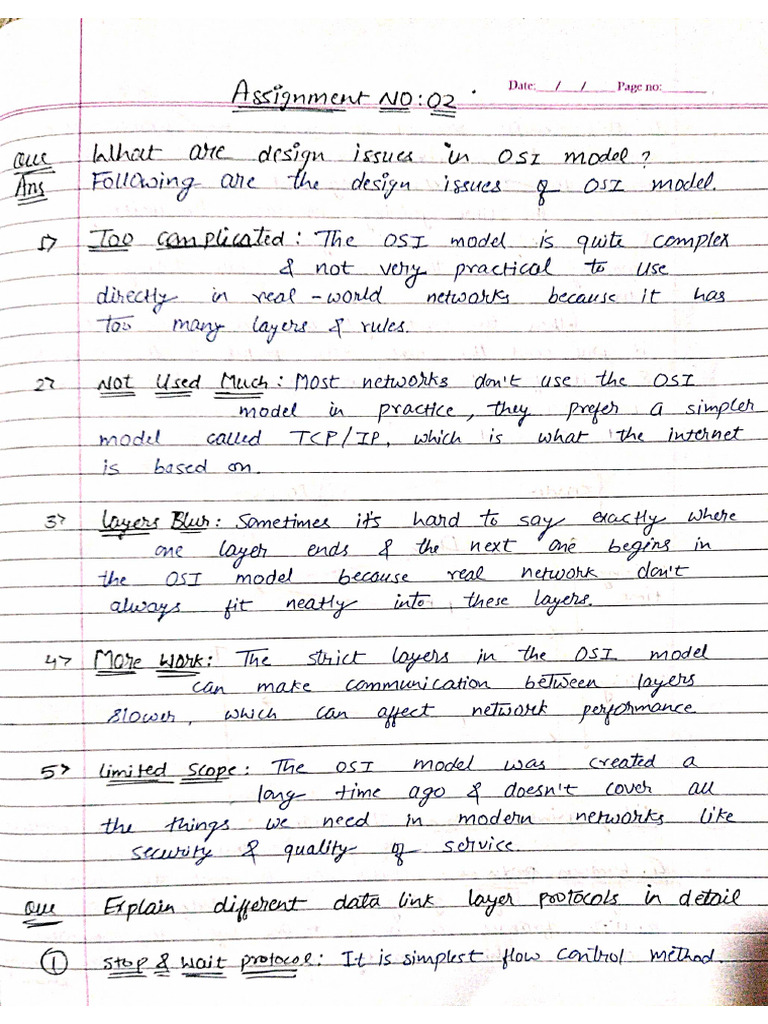 Date: / / Page no:
Assignment NO:02
Que What are design issues in OSI model?
Ans Following are the design issues of OSI model.
1> Too complicated: The OSI model is quite complex
& not very practical to use
directly in real-world networks because it has
too many layers & rules.
2> Not Used Much: Most networks don't use the OSI
model in practice, they prefer a simpler
model called TCP/IP, which is what the internet
is based on.
3> Layers Blur: Sometimes it's hard to say exactly where
one layer ends & the next one begins in
the OSI model because real network don't
always fit neatly into these layers.
4> More Work: The strict layers in the OSI model
can make communication between layers
slower, which can affect network performance
5> Limited Scope: The OSI model was created a
long time ago & doesn't cover all
the things we need in modern networks like
security & quality of service.
Que Explain different data link layer protocols in detail
1 Stop & Wait protocol: It is simplest flow control method.